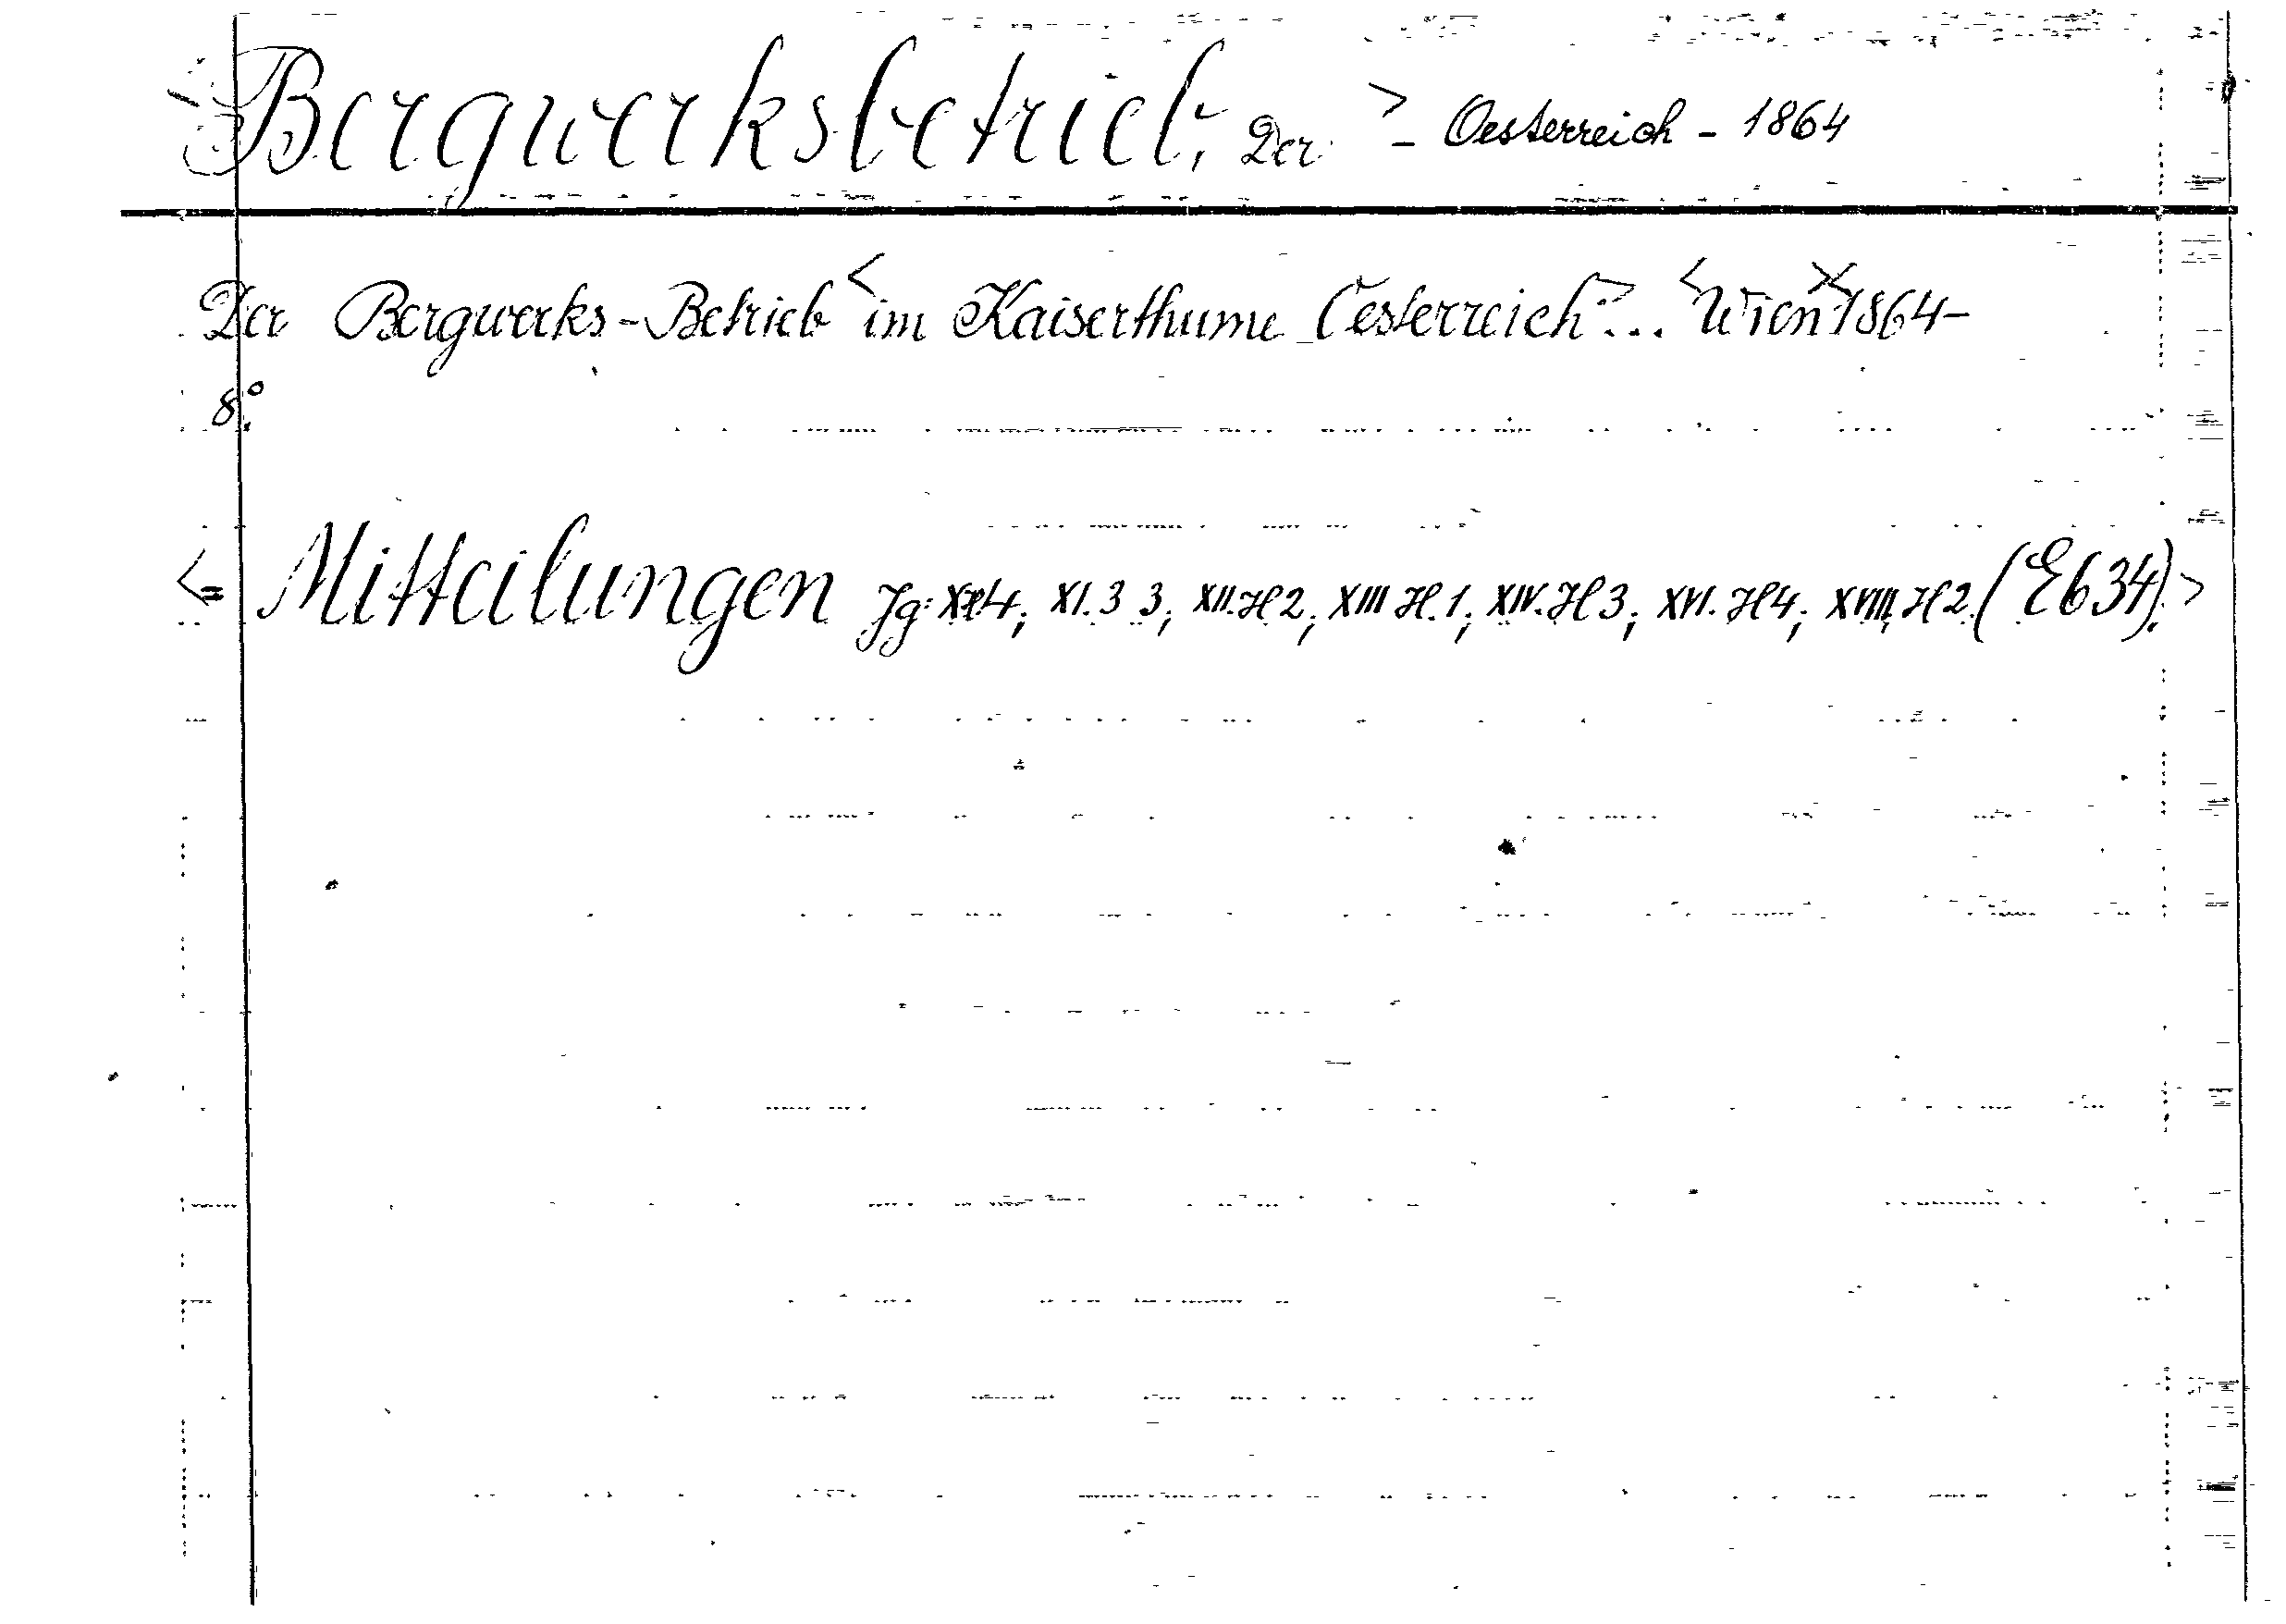 <Bergwerksbetrieb, Der > - Oesterreich - 1864
Der Bergwerks-Betrieb < im Kaiserthume Oesterreich > ... < Wien > 1864-
8°.
<= Mitteilungen Jg: 4; XI. 3 3; XII. H 2; XIII H. 1; XIV. H 3; XVI. H 4; XVIII, H 2. (E634).>